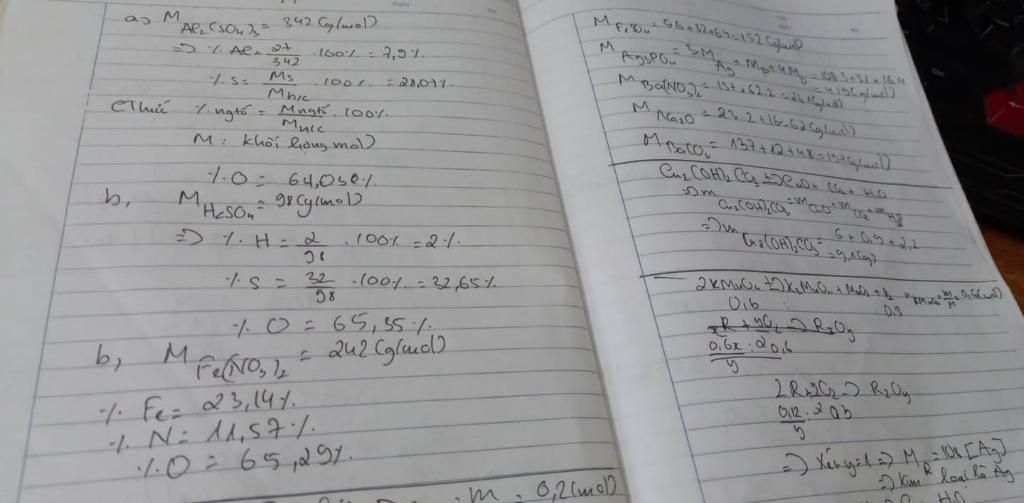 a) M Al₂(SO₄)₃ = 342 (g/mol)
=> % Al = 27/342 . 100% = 7,9%
% S = Ms/Mh/c . 100% = 28,07%
CThức % ngtố = Mngtố/Mh/c . 100%
M: khối lượng mol)
% O = 64,03%
b, M H₂SO₄ = 98 (g/mol)
=> % H = 2/98 . 100% = 2%
% S = 32/98 . 100% = 32,65%
% O = 65,35%
b, M Fe(NO₃)₂ = 242 (g/mol)
% Fe = 23,14%
% N = 11,57%
% O = 65,29%
M = 0,2 (mol)
= 56+32+64 = 152 (g/mol)
M Ag₃PO₄ = 3M Ag + Mp + 4M = 108.3+31+16.4
= 419 (g/mol)
M Ba(NO₃)₂ = 137+62.2 = 261 (g/mol)
M Na₂O = 23.2+16 = 62 (g/mol)
M BaCO₃ = 137+12+48 = 197 (g/mol)
Cu₂(OH)₂CO₃ => CuO + CO₂ + H₂O
=> m Cu₂(OH)₂CO₃ = m CuO + m CO₂ + m H₂O
=> m Cu₂(OH)₂CO₃ = 6 + 0,9 + 2,2
= 9,1 (g)
2KMnO₄ => K₂MnO₄ + MnO₂ + O₂ n KMnO₄ = m/M = 0,6 (mol)
0,6 0,3
xR + yO₂ => R₂Oy
0,6x/y : 2 0,6
2R + yO₂ => R₂Oy
0,12/y : 2 0,3
=> Xét y=1 => M R = 108 [Ag]
=> Kim loại là Ag